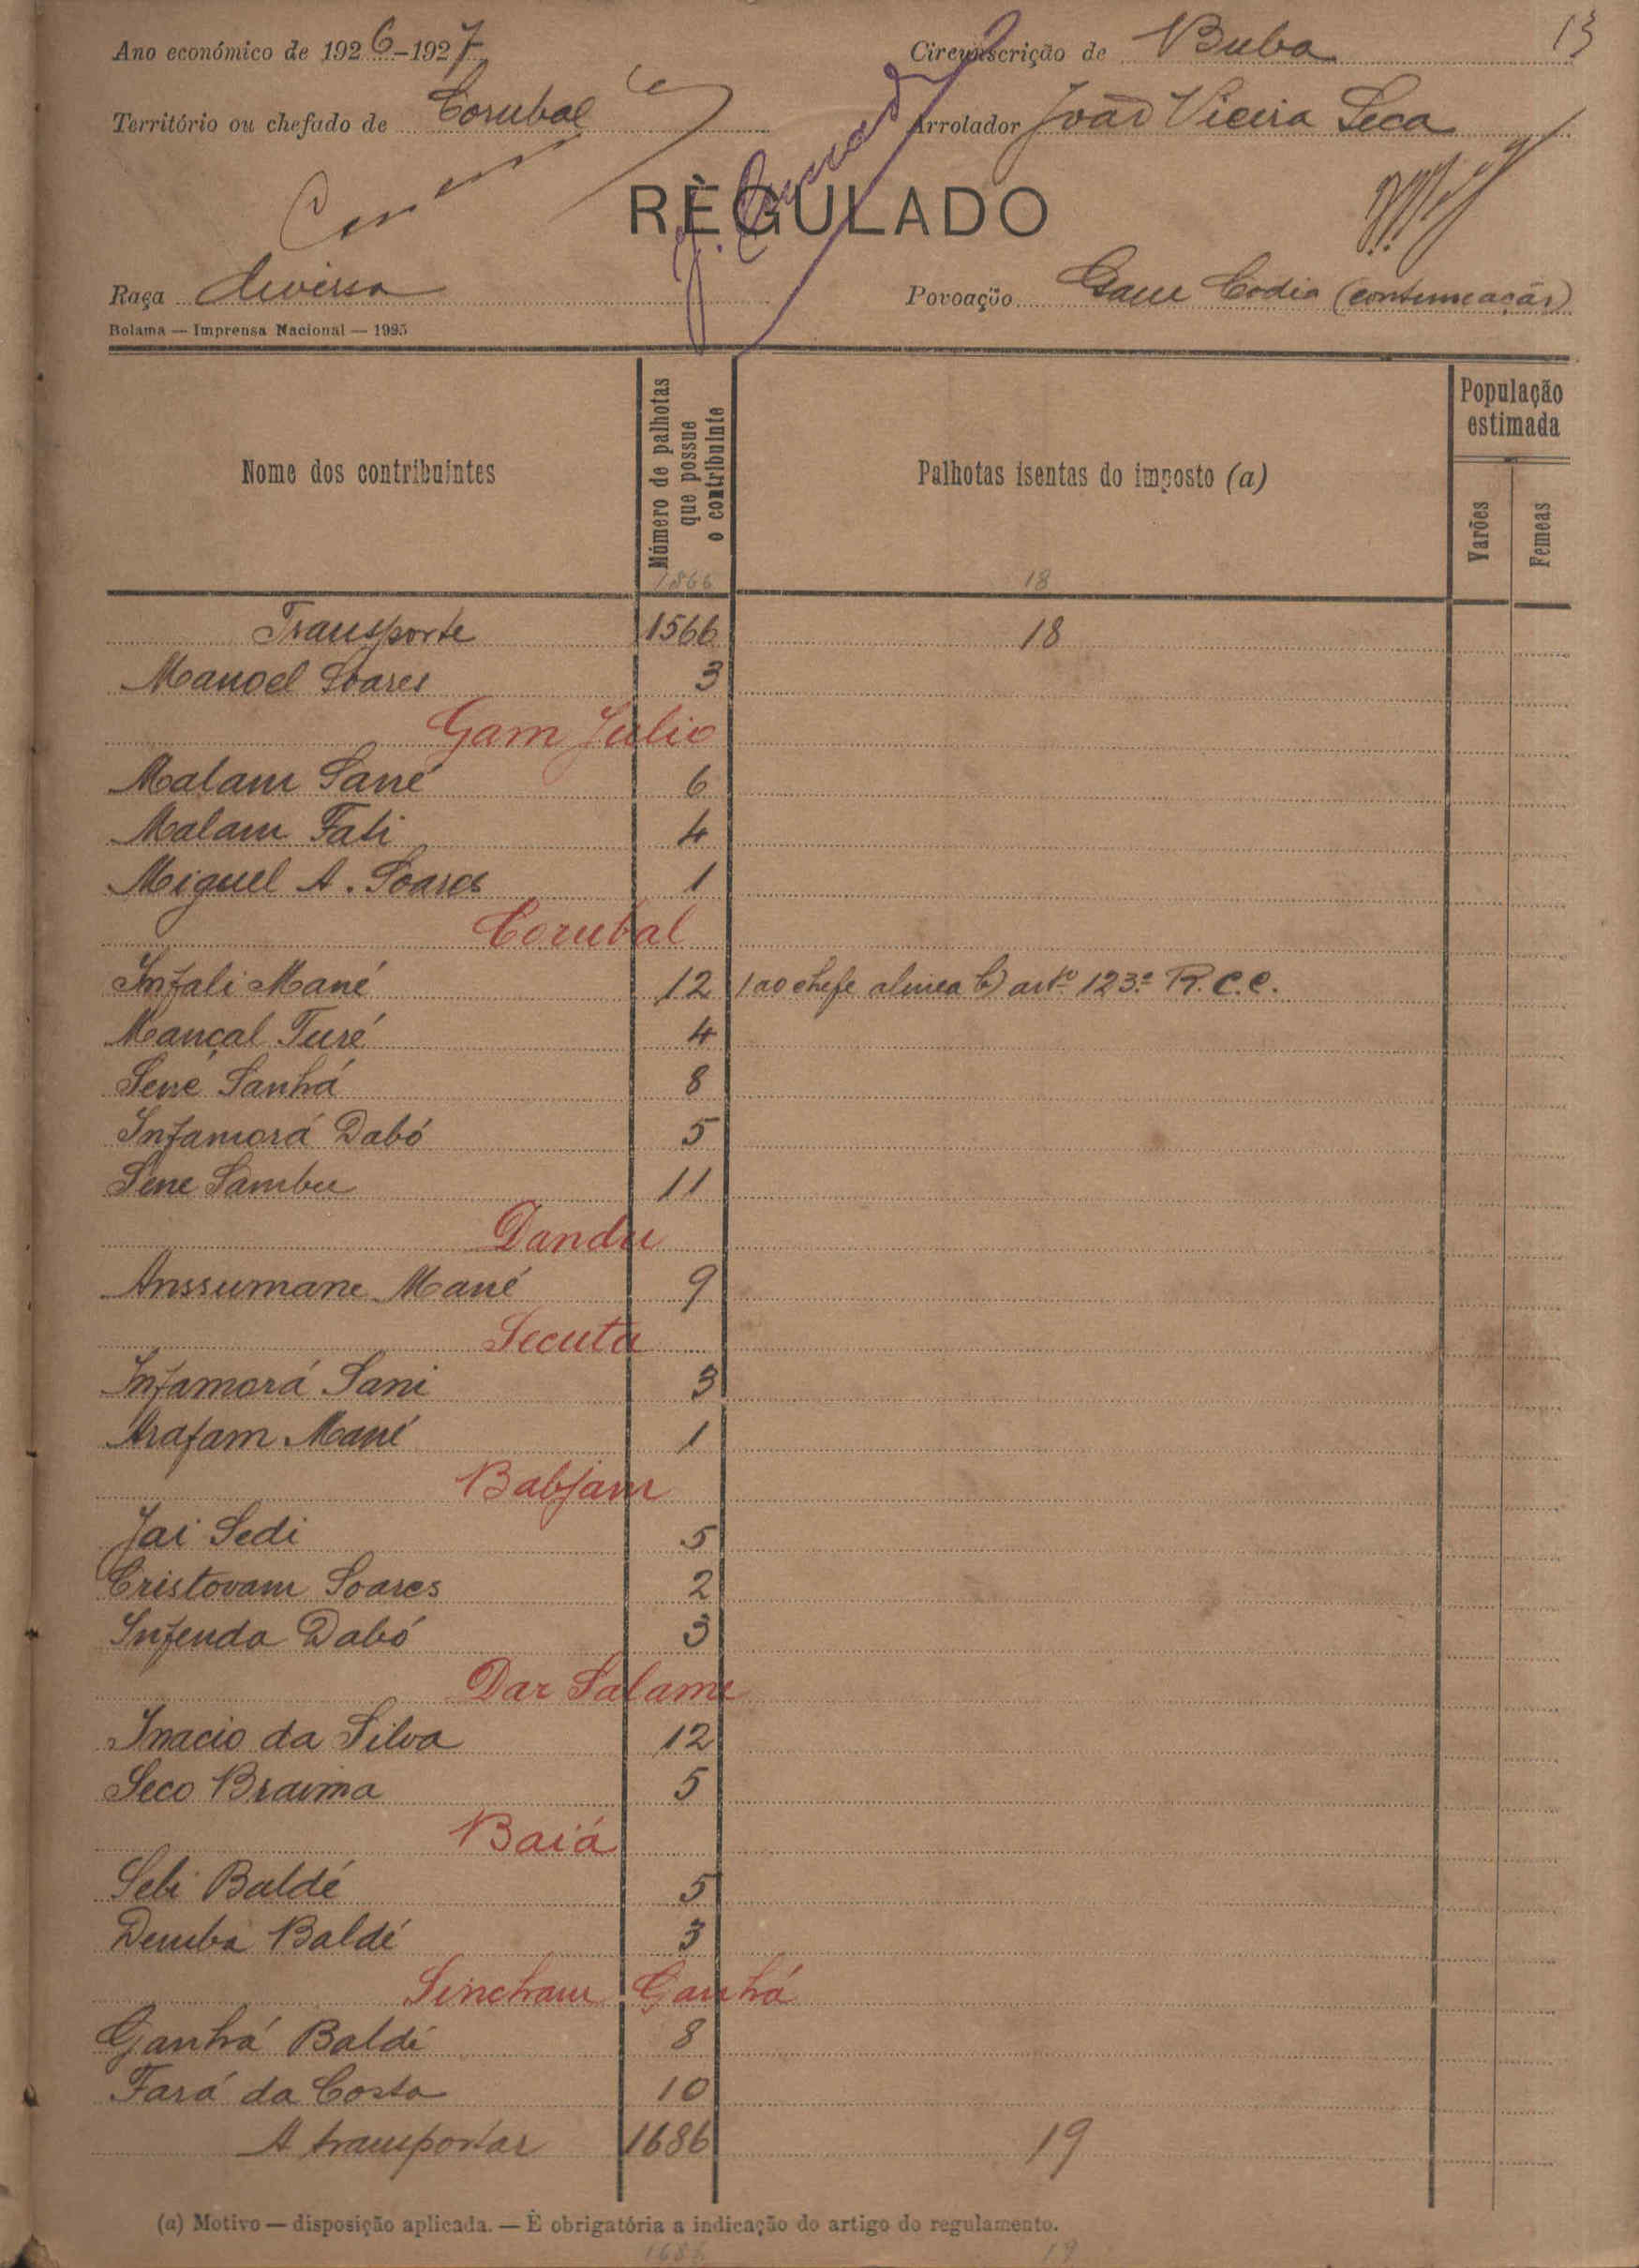 13
Ano económico de 1926-1927 Circunscrição de Buba
Território ou chefado de Corubal Arrolador João Vieira Seca
RÈGULADO
Raça diversa Povoação Codia (continuação)
Bolama — Imprensa Nacional — 1925
Nome dos contribuintes Número de palhotas que possue o contribuinte Palhotas isentas do imposto (a) População estimada Varões Femeas
1866 18
Transporte 1566 18
Manoel Soares 3
Gam Julio
Malam Sané 6
Malam Fati 4
Miguel A. Soares 1
Corubal
Infali Mané 12 1 ao chefe alinea b) artº 123.º R.C.C.
Mançal Turé 4
Sene Sanhá 8
Infamorá Dabó 5
Sene Sambu 11
Dandu
Anssumane Mané 9
Secuta
Infamorá Sani 3
Arafam Mané 1
Babjam
Jai Sedi 5
Cristovam Soares 2
Infenda Dabó 3
Dar Salame
Inacio da Silva 12
Seco Braima 5
Baiá
Sebi Baldé 5
Demba Baldé 3
Sincham Ganhá
Ganhá Baldé 8
Fará da Costa 10
A transportar 1686 19
(a) Motivo — disposição aplicada. — É obrigatória a indicação do artigo do regulamento.
1686 19